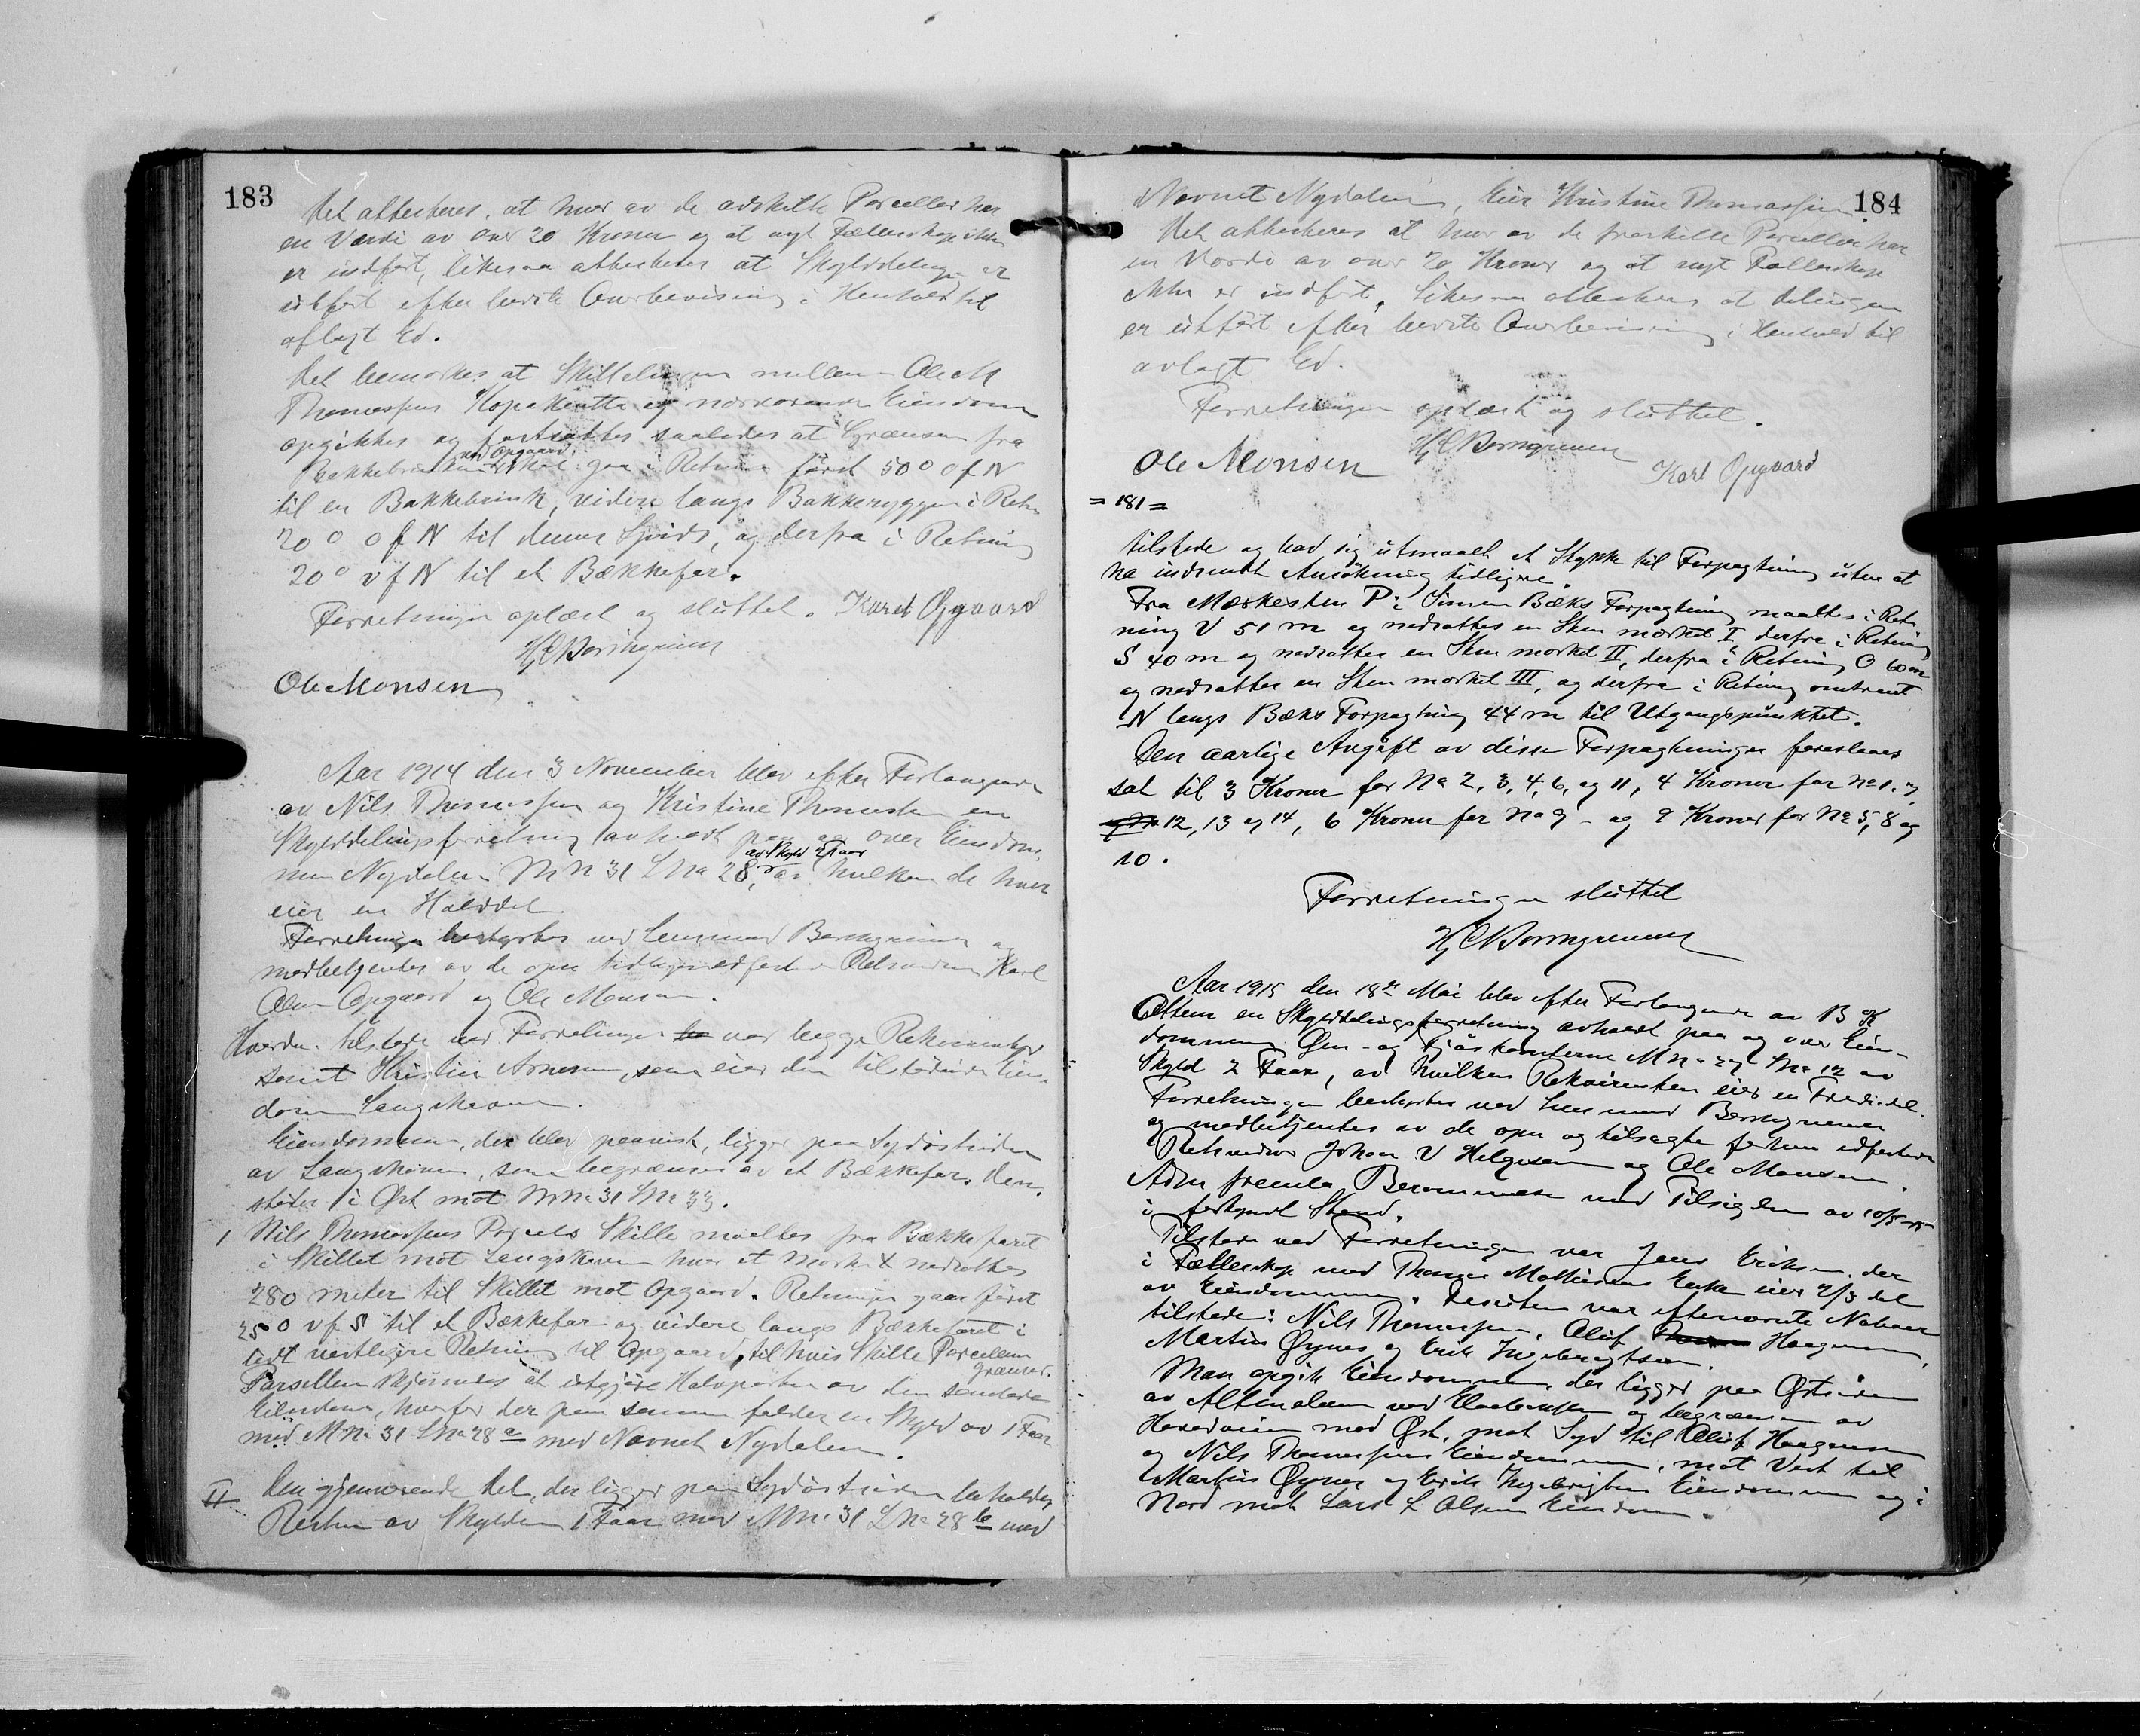 183
Det attesteres, at hver av de adskilte Parceller har
en Værdi av over 20 Kroner og at nyt Fællesskap ikke
er indført, likesaa attesteres at Skylddelingen er
utført efter bedste Overbevisning i Henhold til
aflagt Ed.
Det bemerkes at Skillelinjen mellem Ole M
Thomassens Kopakentta og nærværende Eiendom
opgikkes og fortsattes saaledes at Grænsen fra
ved Opgaard
Bakkebrinken skal gaa i Retning först 50° O f N
til en Bakkebrink, videre langs Bakkeryggen i Retn
20° O f N til dennes Spids, og derfra i Retning
20° V f N til et Bækkefar.
Forretningen oplæst og sluttet. Karel Opgaard
Ole Monsen
Aar 1914 den 3 November blev efter Forlangende
av Nils Thomassen og Kristine Thomassen en
Skylddelingsforretning avholdt paa og over Eiendom
av Skyld 2 Faar
men Nydalen M N 31 L No 28, av hvilken de hver
eier en Halvdel.
Forretningen bestyrtes ved Lensmand og
medbetjentes av de opn tidligere edfestede Retsvidner Karl
Olsen Opgaard og Ole Monsen.
tilstede ved Forretningen var begge Rekvirenter
samt Kristine Arnesen, som eier den tilstødende Eien-
dom Langskaven.
Eiendommen, der blev paavist, ligger paa Sydöstsiden
av Langskaven, som begrænses av et Bækkefar. Den
støter i Øst mot M No 31 L No 33.
1 Nils Thomassens Parcels Skille maaltes fra Bækkefaret
i Skillet mot Langskaven hvor et Merke X nedsattes
280 meter til Skillet mot Opgaard. Retningen gaar først
25° V f S til et Bækkefar og videre langs Bækkefaret i
lidt vestligere Retning til Opgaard, til hvis Skille Parcellen
grænser.
Parsellen skjønnes at utgjøre Halvparten av den samlede
Eiendom, hvorfor der paa samme falder en Skyld av 1 Faar
med M No 31 L No 28 a med Navnet Nydalen.
II Den gjenværende Del, der ligger paa Sydöstsiden beholder
Resten av Skylden 1 Faar med M No 31 L No 28 b med
184
Navnet Nydalen, Eier Kristine Thomassen.
Det attesteres at hver av de fraskilte Parceller har
en Værdi av over 20 Kroner og at nyt Fællesskap
ikke er indført. Likesaa attesteres at Delingen
er utført efter bedste Overbevisning i Henhold til
avlagt Ed.
Forretningen oplæst og sluttet.
Ole Monsen
Karl Opgaard
= 181 =
tilstede og bad sig utmaalt et Stykke til Forpagtning uten at
ha indsendt Ansökning tidligere.
Fra Merkesten P i Simen Bæks Forpagtning maaltes i Ret-
ning V 51 m og nedsattes en Sten merket I, derfra i Retning
S 40 m og nedsattes en Sten merket II, derfra i Retning O 60 m
og nedsattes en Sten merket III, og derfra i Retning omtrent
N langs Bæks Forpagtning 44 m til Utgangspunktet.
Den aarlige Avgift av disse Forpagtninger foreslaaes
sat til 3 Kroner for No 2, 3, 4, 6, og 11, 4 Kroner for No 1, 7,
12, 13 og 14, 6 Kroner for No 9 - og 8 Kroner for No 5, 8 og
10.
Forretningen sluttet
Aar 1915 den 18de Mai blev efter Forlangende av B K
Attem en Skylddelingsforretning avholdt paa og over Eien-
dommen Øen- og M No 27 L No 12 av
Skyld 2 Faar, av hvilken Rekvirenten eier en Trediedel.
Forretningen bestyrtes ved Lensmand
og medbetjentes av de opn og tilsagte forhen edfestede
Retsvidner Johan V Helgesen og Ole Monsen.
Adm fremla Berammelse med Tilsigelse av 10/5-15
i forkyndt Stand.
Tilstede ved Forretningen var Jens Eriksen, der
i Fællesskap med Thomas Mathisens Enke eier 2/3 del
av Eiendommen. Desuten var efternævnte Naboer
tilstede: Nils Thomassen, Oluf Haagensen,
Martin Øynes og Erik Ingebrigtsen.
Man opgik Eiendommen, der ligger paa Østsiden
av Altenelven ved og begrænses av
Hovedveien mod Øst, mot Syd til Oluf Haagensen
og Nils Thomassens Eiendomme, mot Vest til
Martin Øynes og Erik Ingebrigtsens Eiendomme og i
Nord mot Lars L Olsens Eiendom.